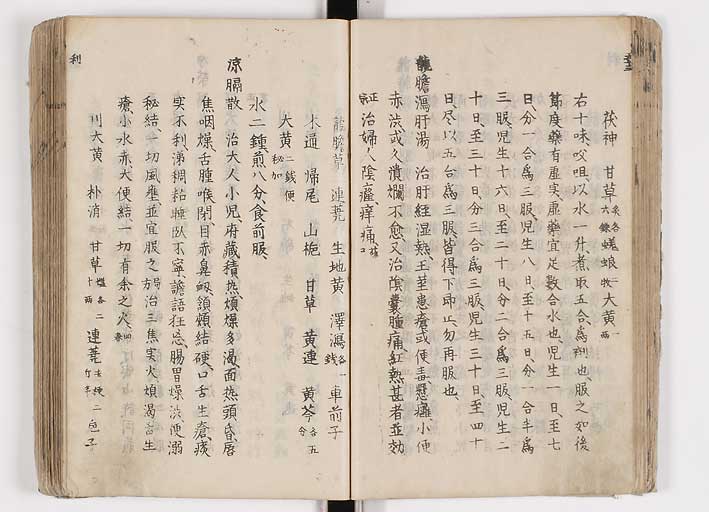 茯神 甘草 炙各六銖 蜣蜋 二枚 大黄 一両
右十味㕮咀以水一升煮取五合為剤也服之如後
節度藥有虚実虚藥宜足数合水也児生一日至七
日分一合為三服児生八日至十五日分一合半為
三服児生十六日至二十日分二合為三服児生二
十日至三十日分三合為三服児生三十日至四十
日尽以五合為三服皆得下即止勿再服也
龍膽瀉肝湯 治肝経湿熱玉莖患瘡或便毒懸癰小便
赤渋或久潰爛不愈又治陰嚢腫痛紅熱甚者並効
正宗 治婦人陰癊痒痛
龍膽草 連翹 生地黄 澤瀉 各一銭 車前子
木通 帰尾 山梔 甘草 黄連 黄芩 各五分
大黄 二銭便秘加
水二鍾煎八分食前服
凉膈散 治大人小児府藏積热煩燥多渇面热頭昏唇
焦咽燥舌腫喉閉目赤鼻衂頷頬結硬口舌生瘡痰
実不利涕稠粘睡臥不寧譫語狂忘腸胃燥渋便溺
秘結一切風壅並宜服之 治三焦実火煩渇
瘡小水赤大便結一切有余之火
川大黄 朴消 甘草 各二十両 連翹
利